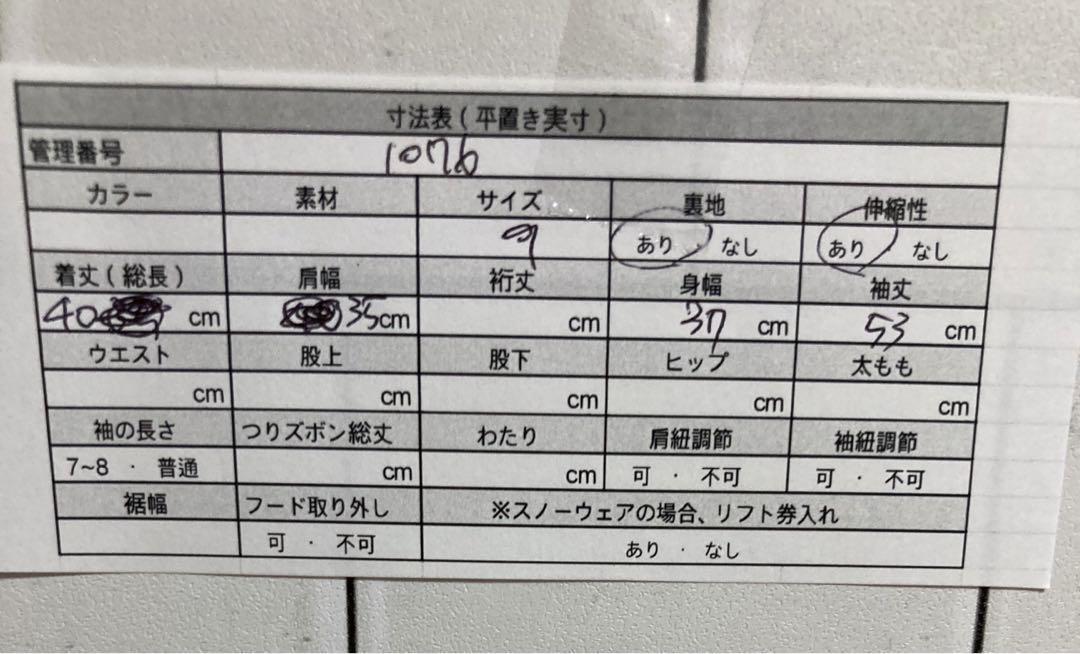 寸法表(平置き実寸)
管理番号 1076
カラー 素材 サイズ 裏地 伸縮性
9 あり . なし あり . なし
着丈(総長) 肩幅 裄丈 身幅 袖丈
40 cm 35cm cm 37 cm 53 cm
ウエスト 股上 股下 ヒップ 太もも
cm cm cm cm cm
袖の長さ つりズボン総丈 わたり 肩紐調節 袖紐調節
7~8 · 普通 cm cm 可 · 不可 可 · 不可
裾幅 フード取り外し ※スノーウェアの場合、リフト券入れ
可 · 不可 あり · なし